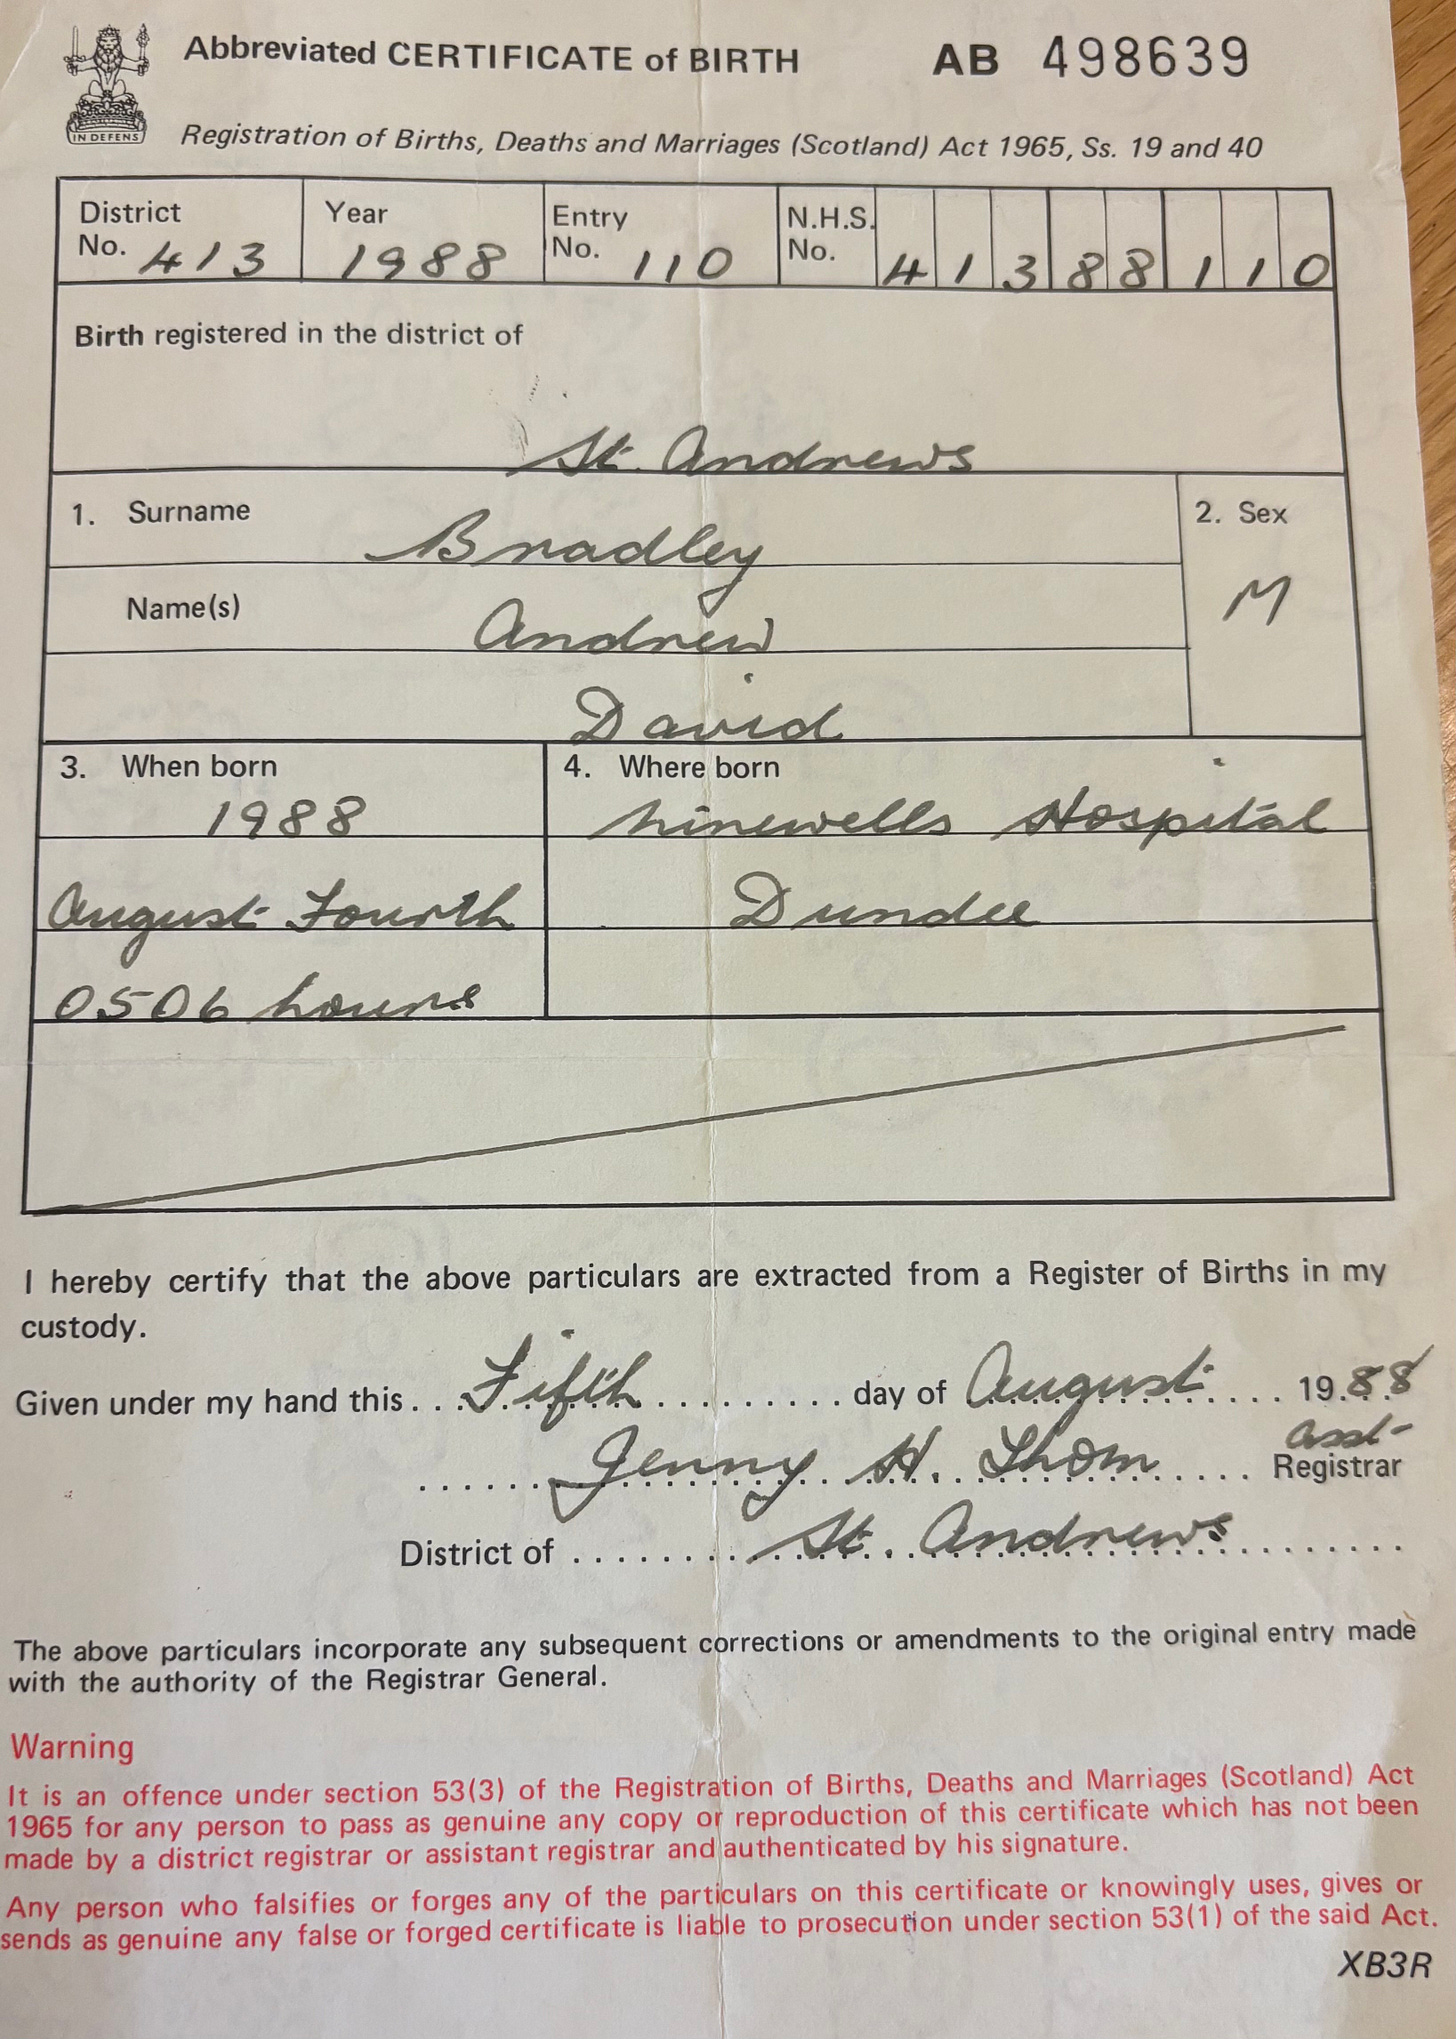 Abbreviated CERTIFICATE of BIRTH AB 498639
IN DEFENS
Registration of Births, Deaths and Marriages (Scotland) Act 1965, Ss. 19 and 40
District No. 413 Year 1988 Entry No. 110 N.H.S. No. 41388110
Birth registered in the district of
St. Andrews
1. Surname Bradley 2. Sex
Name(s) Andrew M
David
3. When born 4. Where born
1988 Ninewells Hospital
August Fourth Dundee
0506 hours
I hereby certify that the above particulars are extracted from a Register of Births in my
custody.
Given under my hand this Fifth day of August 1988
Jenny H. Thom Asst Registrar
District of St. Andrews
The above particulars incorporate any subsequent corrections or amendments to the original entry made
with the authority of the Registrar General.
Warning
It is an offence under section 53(3) of the Registration of Births, Deaths and Marriages (Scotland) Act
1965 for any person to pass as genuine any copy or reproduction of this certificate which has not been
made by a district registrar or assistant registrar and authenticated by his signature.
Any person who falsifies or forges any of the particulars on this certificate or knowingly uses, gives or
sends as genuine any false or forged certificate is liable to prosecution under section 53(1) of the said Act.
XB3R